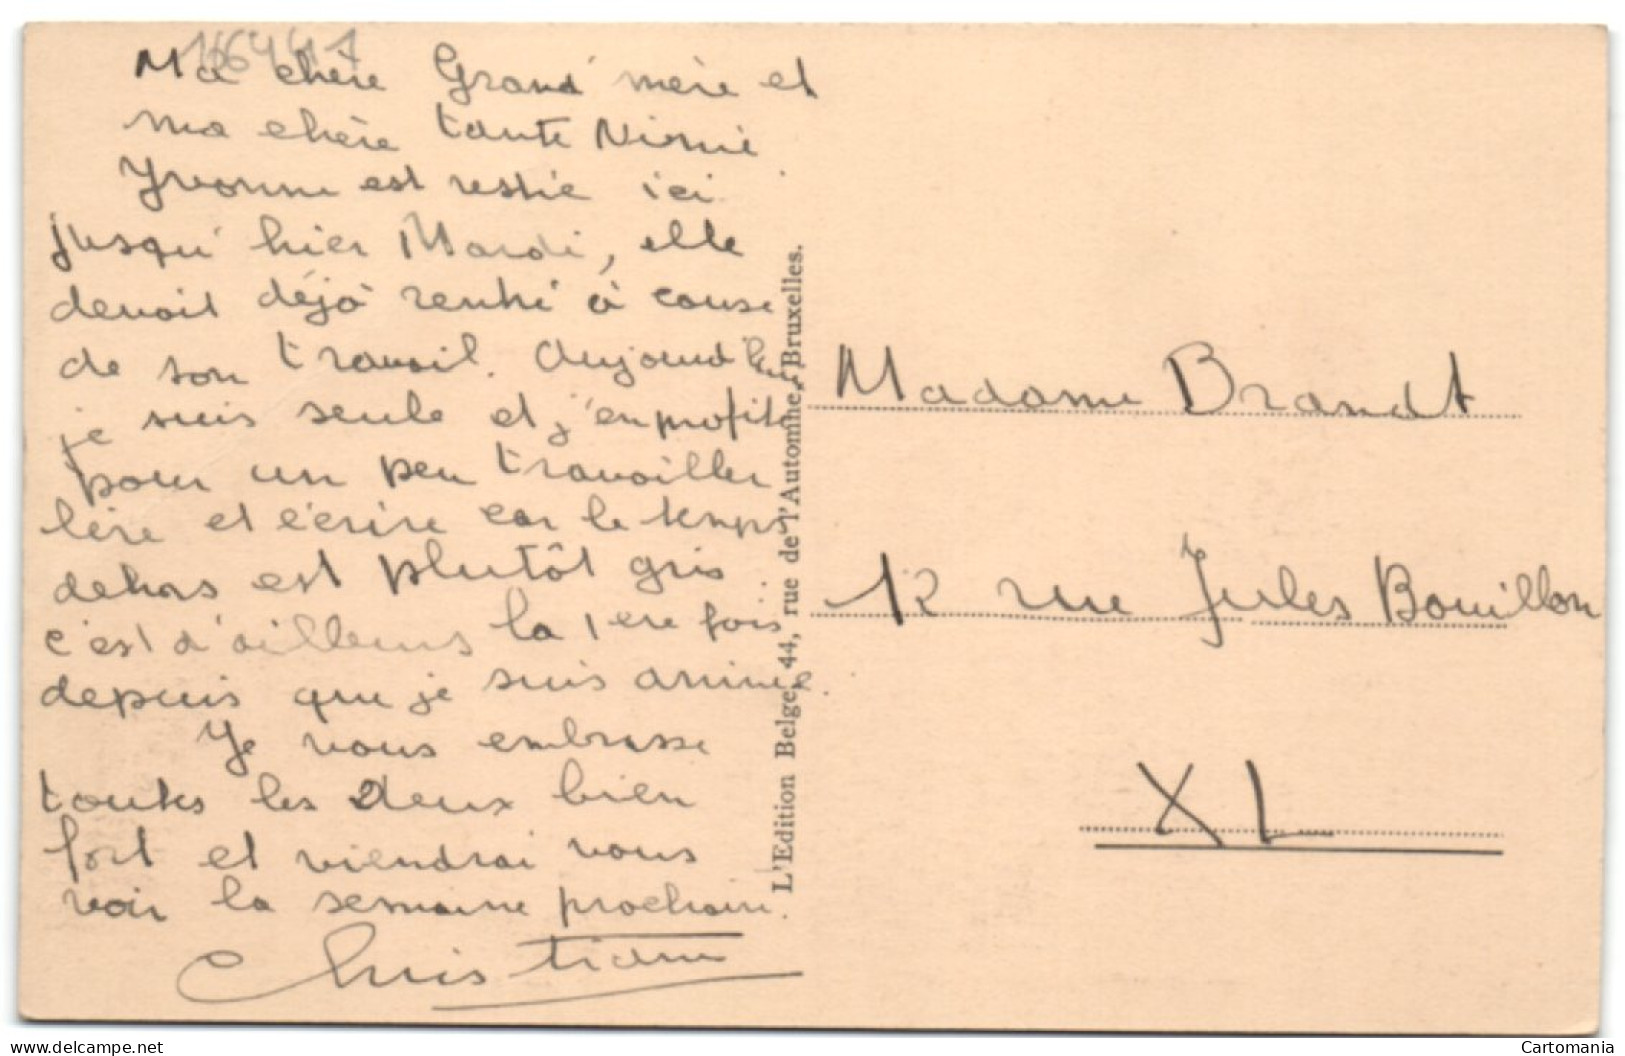 16441
Ma chère Grand'mère et
ma chère tante
Yvonne est restée ici
jusqu'hier Mardi, elle
devait déjà rentré à cause
de son travail. Aujourd'hui
je suis seule et j'en profite
pour un peu travailler
lire et écrire car le temps
dehors est plutôt gris
c'est d'ailleurs la 1ere fois
depuis que je suis arrivée.
Je vous embrasse
toutes les deux bien
fort et viendrai vous
voir la semaine prochaine.
Christiane
L'Edition Belge, 44, rue de l'Automne, Bruxelles.
Madame Brandt
12 rue Jules Bouillon
XL
www.delcampe.net
Cartomania